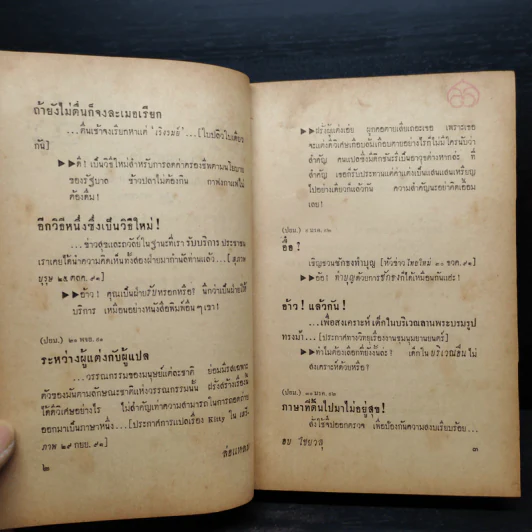 ถ้ายังไม่ตื่นก็จงละเมอเรียก
...ตื่นเช้าจงเรียกหาแต่ 'เริงรมย์' ...[ใบปลิวใบเดียว
กัน]
▶▶ ตี๋! เป็นวิธีใหม่สำหรับการลดค่าครองชีพตามนโยบาย
ของรัฐบาล ข้าวปลาไม่ต้องกิน กาแฟงกาแฟไม่
ต้องดื่ม!
อีกวิธีหนึ่งซึ่งเป็นวิธีใหม่!
...ข่าวสุขและถวัลย์ในฐานะที่เรา รับบริการ ประชาชน
เราเคยให้นำความคิดเห็นทั้งสองฝ่ายมากำนัลท่านแล้ว...[สุภาพ
บุรุษ ๒๕ ตลค. ๙๑]
▶▶ อ้าว! คุณเป็นฝ่ายรับหรอกหรือ? นึกว่าเป็นฝ่ายให้
บริการ เหมือนอย่างหนังสือพิมพ์อื่นๆเขา!
(ปยม.) ๒๑ พจย. ๙๑
ระหว่างผู้แต่งกับผู้แปล
...วรรณกรรมของมนุษย์แต่ละชาติ ย่อมมีรสเฉพาะ
ของมันตามลักษณะชาติแห่งวรรณกรรมนั้น ฝรั่งสร้างเรื่อง
ได้ดีวิเศษอย่างไร ไม่สำคัญเท่าความสามารถในการถอดถ่าย
ออกมาเป็นภาษาหนึ่ง...[ประกาศการแปลเรื่อง Kitty ใน เสรี-
ภาพ ๒๙ กยย. ๙๑]
๒
▶▶ เพราะ เธอ
จะแต่งดีวิเศษเลอเลิศเกือบตายอย่างไรก็ไม่มีใครนับว่า
สำคัญ คนแปลซึ่งมีดิกชันนารี่เป็นอาวุธต่างหากล่ะ ที่
สำคัญ เธอก็รับประทานแต่คำแต่งเป็นแสนแสนเหรียญ
ไปอย่างเดียวก็แล้วกัน ความสำคัญนะอย่าคิดเอื้อม
เลย!
(ปยม.)
อื้อ?
เชิญชวนชักธงทำบุญ [หัวข่าว ไทยใหม่ ๓๐ จวค. ๙๑]
▶▶ อ้อ! ทำบุญด้วยการชักธงก็ได้เหมือนกันแฮะ!
อ้าว! แล้วกัน!
...เพื่อสงเคราะห์ เด็กในบริเวณลานพระบรมรูป
ทรงม้า...[ประกาศทางวิทยุเรื่องงานชุมนุมยานยนตร์]
▶▶ ทำไมต้องเลือกที่ยังงั้นล่ะ? เด็กในบริเวณอื่นไม่
สงเคราะห์ด้วยหรือ?
(ปยม.)
ภาษาที่ดิ้นไปมาไม่อยู่สุข!
สั่งใช้ปืนออกตรวจ เพื่อป้องกันความสงบเรียบร้อย...
อบ ไชยวสุ
๓